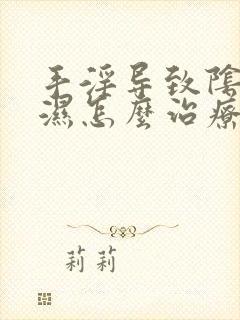 手淫导致陰
濕怎麼治療
莉莉